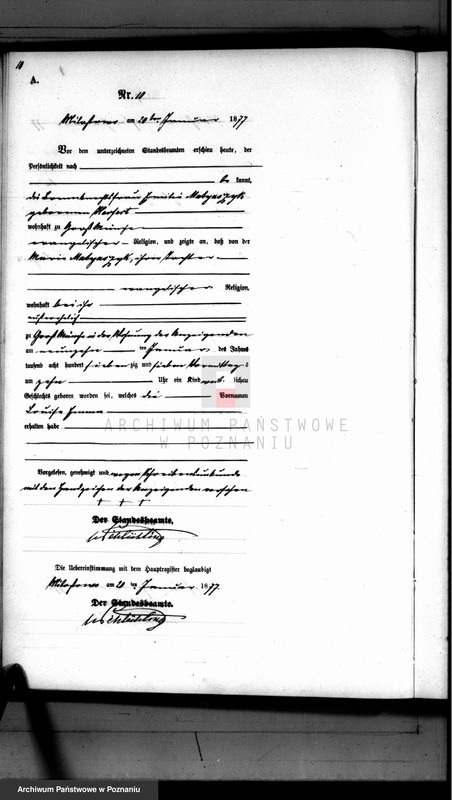 10
A.
Nr. 10
am 20ten Januar 1877
Vor dem unterzeichneten Standesbeamten erschien heute, der
Persönlichkeit nach
be kannt,
geborenen
wohnhaft zu Groß Münche
evangelischer Religion, und zeigte an, daß von der
Marie Matyaszzyk, ihrer Tochter
evangelischer Religion,
wohnhaft bei ihr
zu Groß Münche in der Wohnung der Anzeigenden
am neunzehn ten Januar des Jahres
tausend acht hundert siebenzig und sieben Vormittags
um zehn Uhr ein Kind weib lichen
Geschlechts geboren worden sei, welches die Vornamen
Louise Emma
erhalten habe
Vorgelesen, genehmigt und wegen Schreibensunkunde
mit den Handzeichen der Anzeigenden versehen
+ + +
Der Standesbeamte.
Die Uebereinstimmung mit dem Hauptregister beglaubigt
am 20 ten Januar 1877.
Der Standesbeamte.
ARCHIWUM PAŃSTWOWE
W POZNANIU
Archiwum Państwowe w Poznaniu